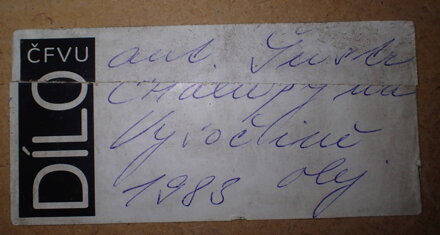 ČFVU
DÍLO
aut. Šustr
Chalupy na
Vysočině
1983 olej